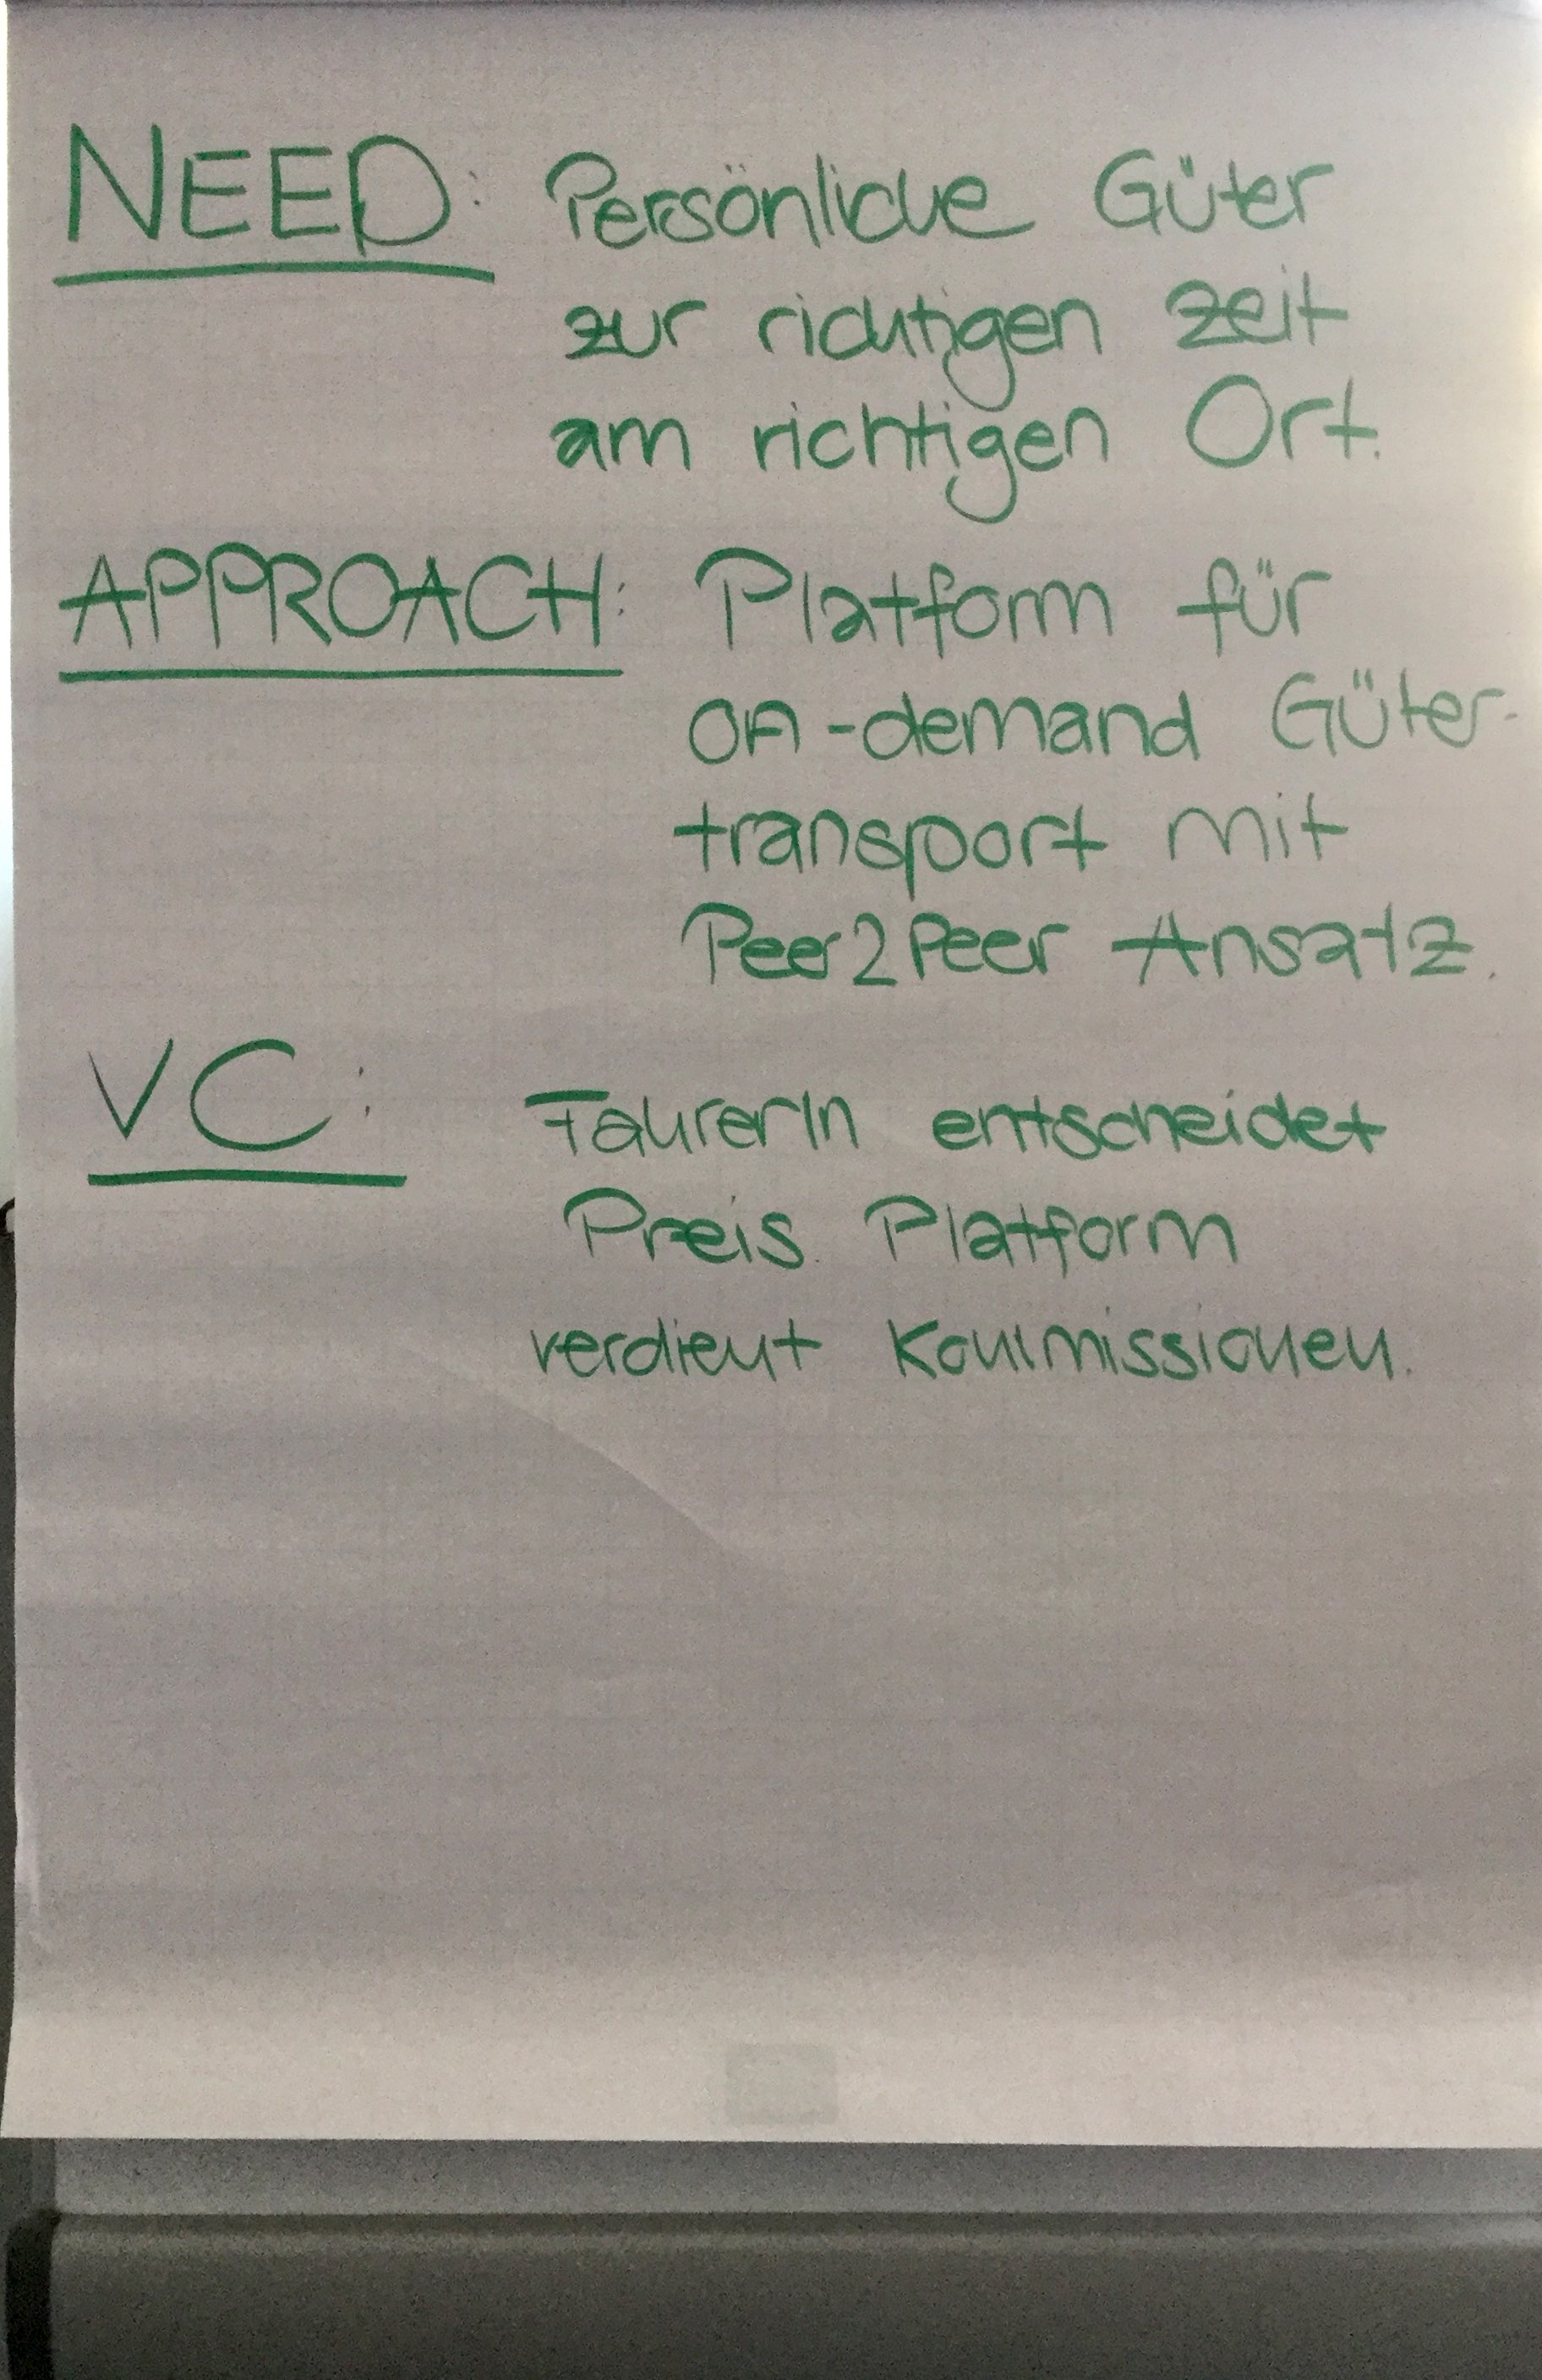 NEED: Persönliche Güter
zur richtigen Zeit
am richtigen Ort.
APPROACH: Platform für
on-demand Güter-
transport mit
Peer2Peer Ansatz.
VC: FahrerIn entscheidet
Preis. Platform
verdient Kommissionen.